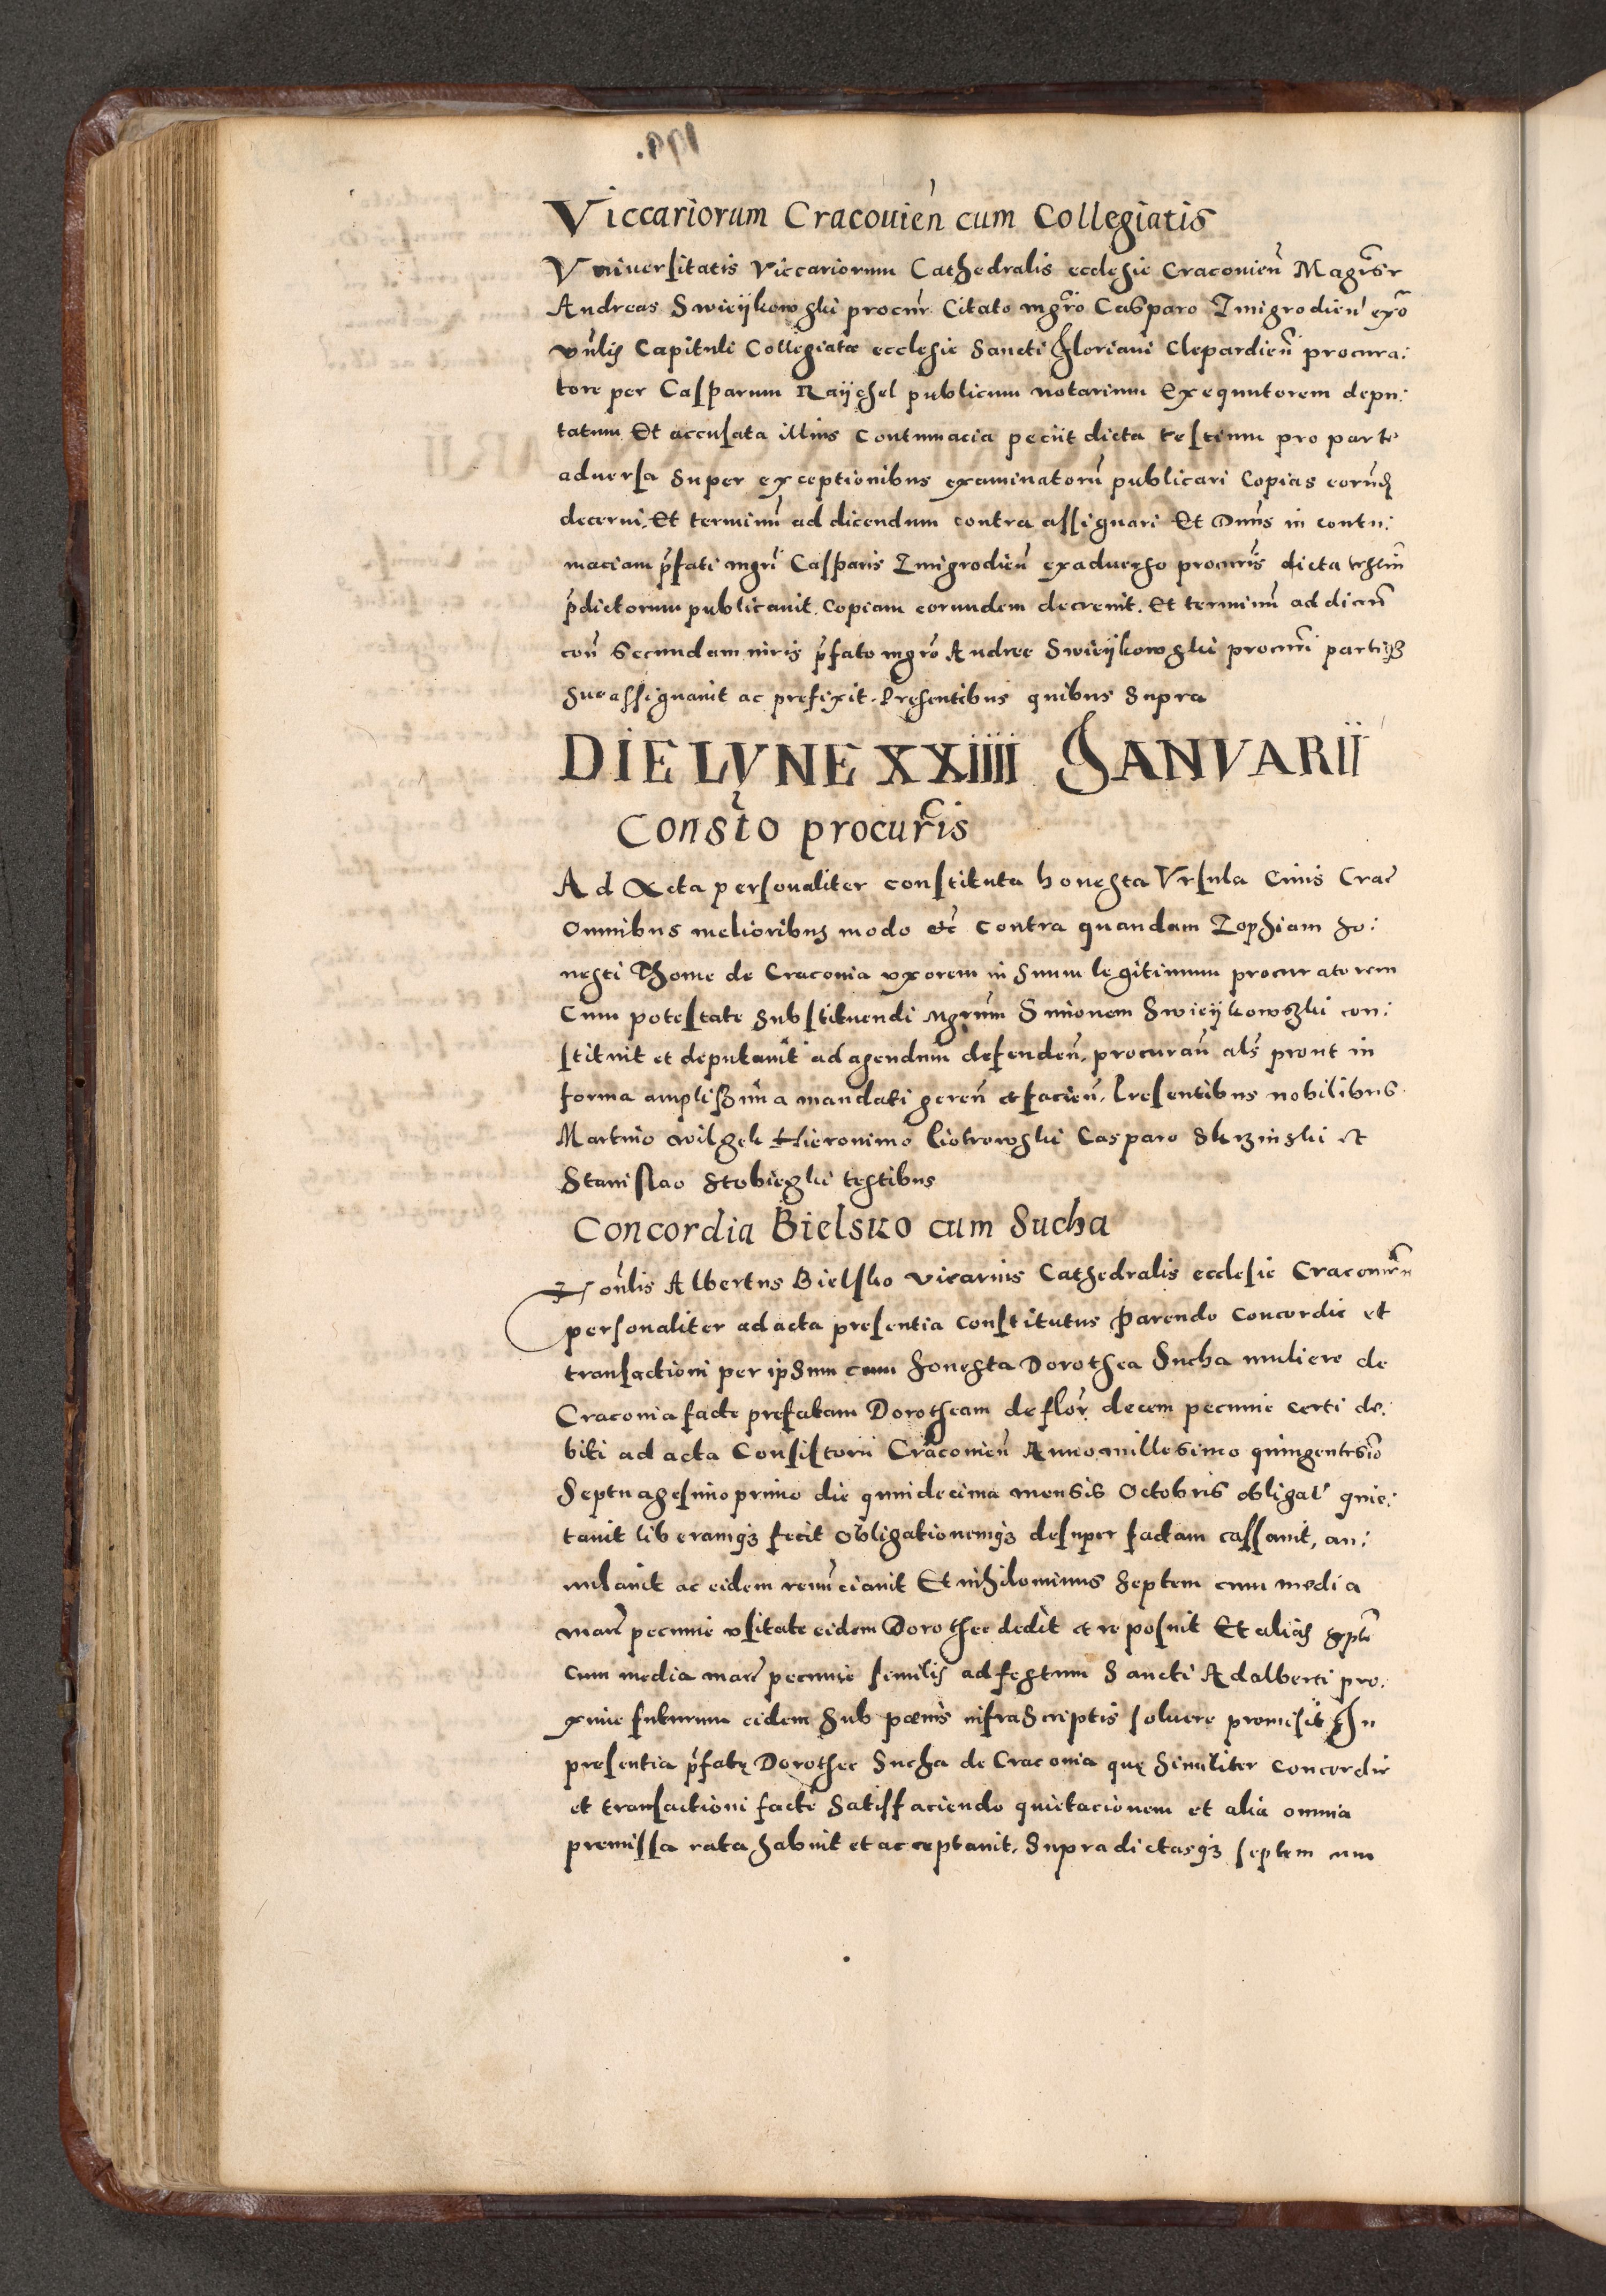 Viccariorum Cracouien̄ cum Collegiatis
Vniuersitatis Viccariorum Cathedralis ecclesie Cracouien̄ Magr̄sr
Andreas Swieijkowski procūr. Citato mgrō Casparo Zmigrodien̄ exō
vūlis Capituli Collegiatæ ecclesie Sancti Floriani Clepardien̄ procura:
tore per Casparum Raijchel publicum notarium Exequutorem depu:
tatum Et accusata illius contumacia peciit dicta testium pro parte
aduersa super exceptionibus examinatorū publicari Copias eorūdē
decerni, Et terminū ad dicendum contra assignari Et Dnūs in contu:
maciam p̄fati mgrī Casparis Zmigrodien̄ exaduerso procurīs dicta testiū
p̄dictorum publicauit. Copiam eorundem decreuit. Et terminū ad dicen̄
con̄ Secundam iuris p̄fato mgrō Andree Swieijkowski procurī partis
sue assignauit ac prefixit. Presentibus quibus supra
DIE LVNE XXIIII JANVARII
Constō procurīs
Ad Acta personaliter constituta honesta Vrsula Ciuis Crac̄
Omnibus melioribus modo etc̄ contra quandam Zophiam ho:
nesti Thome de Cracouia vxorem in suum legitimum procuratorem
Cum potestate substituendi Mgrūm Simonem Swieijkowski con:
stituit et deputauit ad agendum defenden̄, procuran̄ alš prout in
forma amplissima mandati geren̄ et facien̄. Presentibus nobilibus
Martino Wilgek Hieronimo Piotrowski Casparo Skrzinski et
Stanislao Stobieski testibus
Concordia Bielsko cum Sucha
Honūlis Albertus Bielsko vicarius Cathedralis ecclesie Cracouien̄
personaliter ad acta presentia constitutus Parendo Concordie et
transactioni per ipsum cum honesta Dorothea Sucha muliere de
Cracouia facte prefatam Dorotheam de flor̄ decem pecunie certi de:
biti ad acta Consistorii Cracouien̄ Anno millesimo quingentesīo
Septuagesimoprimo die quindecima mensis Octobris obligat̄ quie:
tauit liberamq3 fecit Obligationemq3 desuper factam cassauit, an:
nulauit ac eidem renūciauit Et nihilominus septem cum media
marc̄ pecunie vsitate eidem Dorothee dedit et reposuit Et alias septē
cum media marc̄ pecunie similis ad festum Sancti Adalberti pro:
xime futurum eidem sub pœnis infrascriptis soluere promisit In
presentia p̄fatę Dorothee Sucha de Cracouia quę similiter concordie
et transactioni facte satisfaciendo quietacionem et alia omnia
premissa rata habuit et acceptauit. Supradictasq3 septem cum